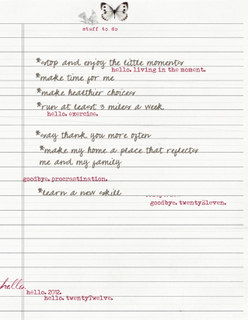 stuff to do
*stop and enjoy the little moments
hello. living in the moment.
*make time for me
*make healthier choices
*run at least 3 miles a week
hello. exercise.
*say thank you more often
*make my home a peace that reflects
me and my family
goodbye. procrastination.
*learn a new skill
goodbye. twenty11even.
hello.
hello. 2012.
hello. twentyTwelve.